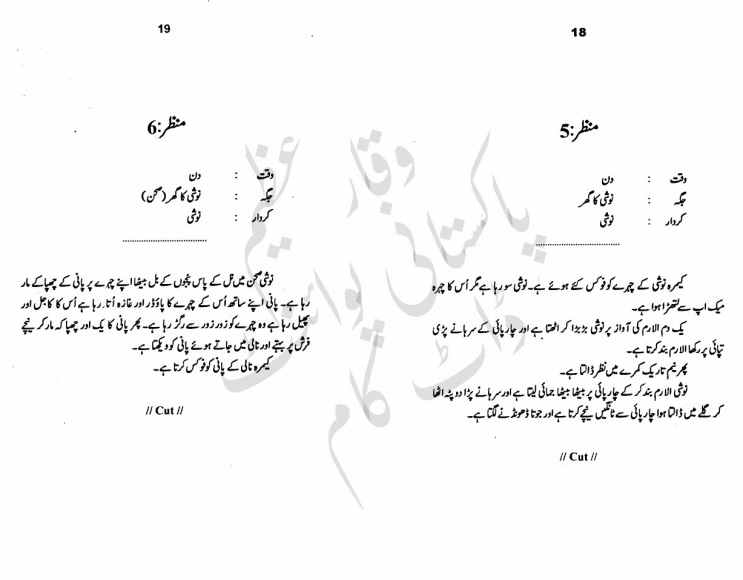 18
منظر:5
وقت : دن
جگہ : نوشی کا گھر
کردار : نوشی
کیمرہ نوشی کے چہرے کو فوکس کئے ہوئے ہے۔ نوشی سو رہا ہے مگر اُس کا چہرہ
میک اپ سے لتھڑا ہوا ہے۔
یک دم الارم کی آواز پر نوشی ہڑبڑا کر اٹھتا ہے اور چارپائی کے سرہانے پڑی
تپائی پر رکھا الارم بند کرتا ہے۔
پھر نیم تاریک کمرے میں نظر ڈالتا ہے۔
نوشی الارم بند کر کے چارپائی پر بیٹھا بیٹھا جمائی لیتا ہے اور سرہانے پڑا دوپٹہ اٹھا
کر گلے میں ڈالتا ہوا چارپائی سے ٹانگیں نیچے کرتا ہے اور جوتا ڈھونڈنے لگتا ہے۔
// Cut //
19
منظر:6
وقت : دن
جگہ : نوشی کا گھر (صحن)
کردار : نوشی
نوشی صحن میں نل کے پاس پنجوں کے بل بیٹھا اپنے چہرے پر پانی کے چھپاکے مار
رہا ہے۔ پانی اپنے ساتھ اُس کے چہرے کا پاؤڈر اور غازہ اُتار رہا ہے اُس کا کاجل اور
پھیل رہا ہے وہ چہرے کو زور زور سے رگڑ رہا ہے۔ پھر پانی کا یک اور چھپا کہ مار کر نیچے
فرش پر بہتے اور نالی میں جاتے ہوئے پانی کو دیکھتا ہے۔
کیمرہ نالی کے پانی کو فوکس کرتا ہے۔
// Cut //
وقار عظیم
پاکستانی پوائنٹ
ڈاٹ کام